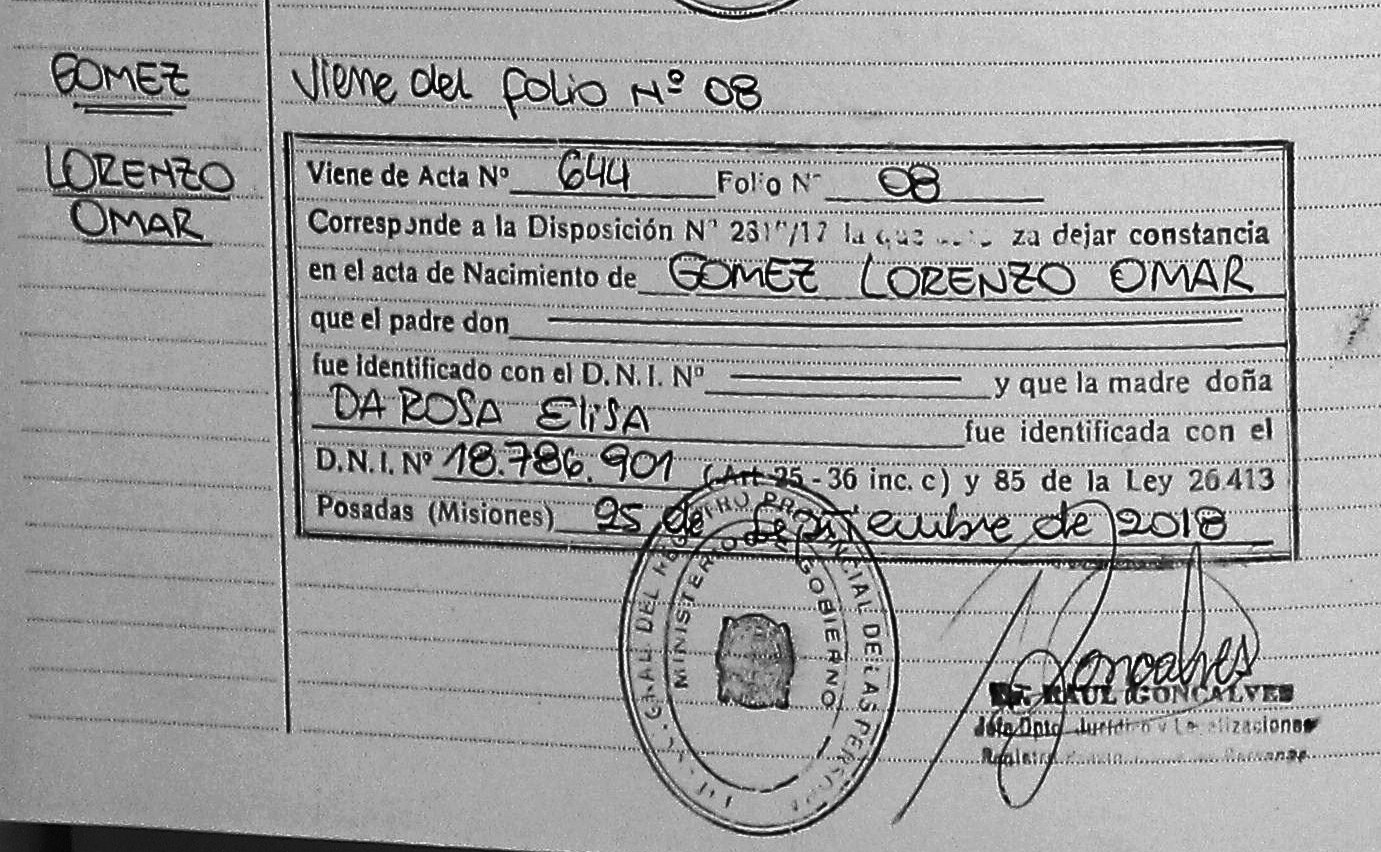 GOMEZ
LORENZO
OMAR
Viene del folio Nº 08
Viene de Acta Nº 644 Folio Nº 08
Corresponde a la Disposición Nº /17 la que za dejar constancia
en el acta de Nacimiento de GOMEZ LORENZO OMAR
que el padre don
fue identificado con el D.N.I. Nº y que la madre doña
DA ROSA ELISA
fue identificada con el
D.N.I. Nº 18.786.901 (Art 25 - 36 inc. c) y 85 de la Ley 26413
Posadas (Misiones) 25 de Septiembre de 2018
GRAL. DEL REGISTRO PROVINCIAL DE LAS PERSONAS
MINISTERIO DE GOBIERNO
Goncalves
RAUL GONCALVES
Jefe Dpto. Jurídico y Legalizaciones
Registro Personas